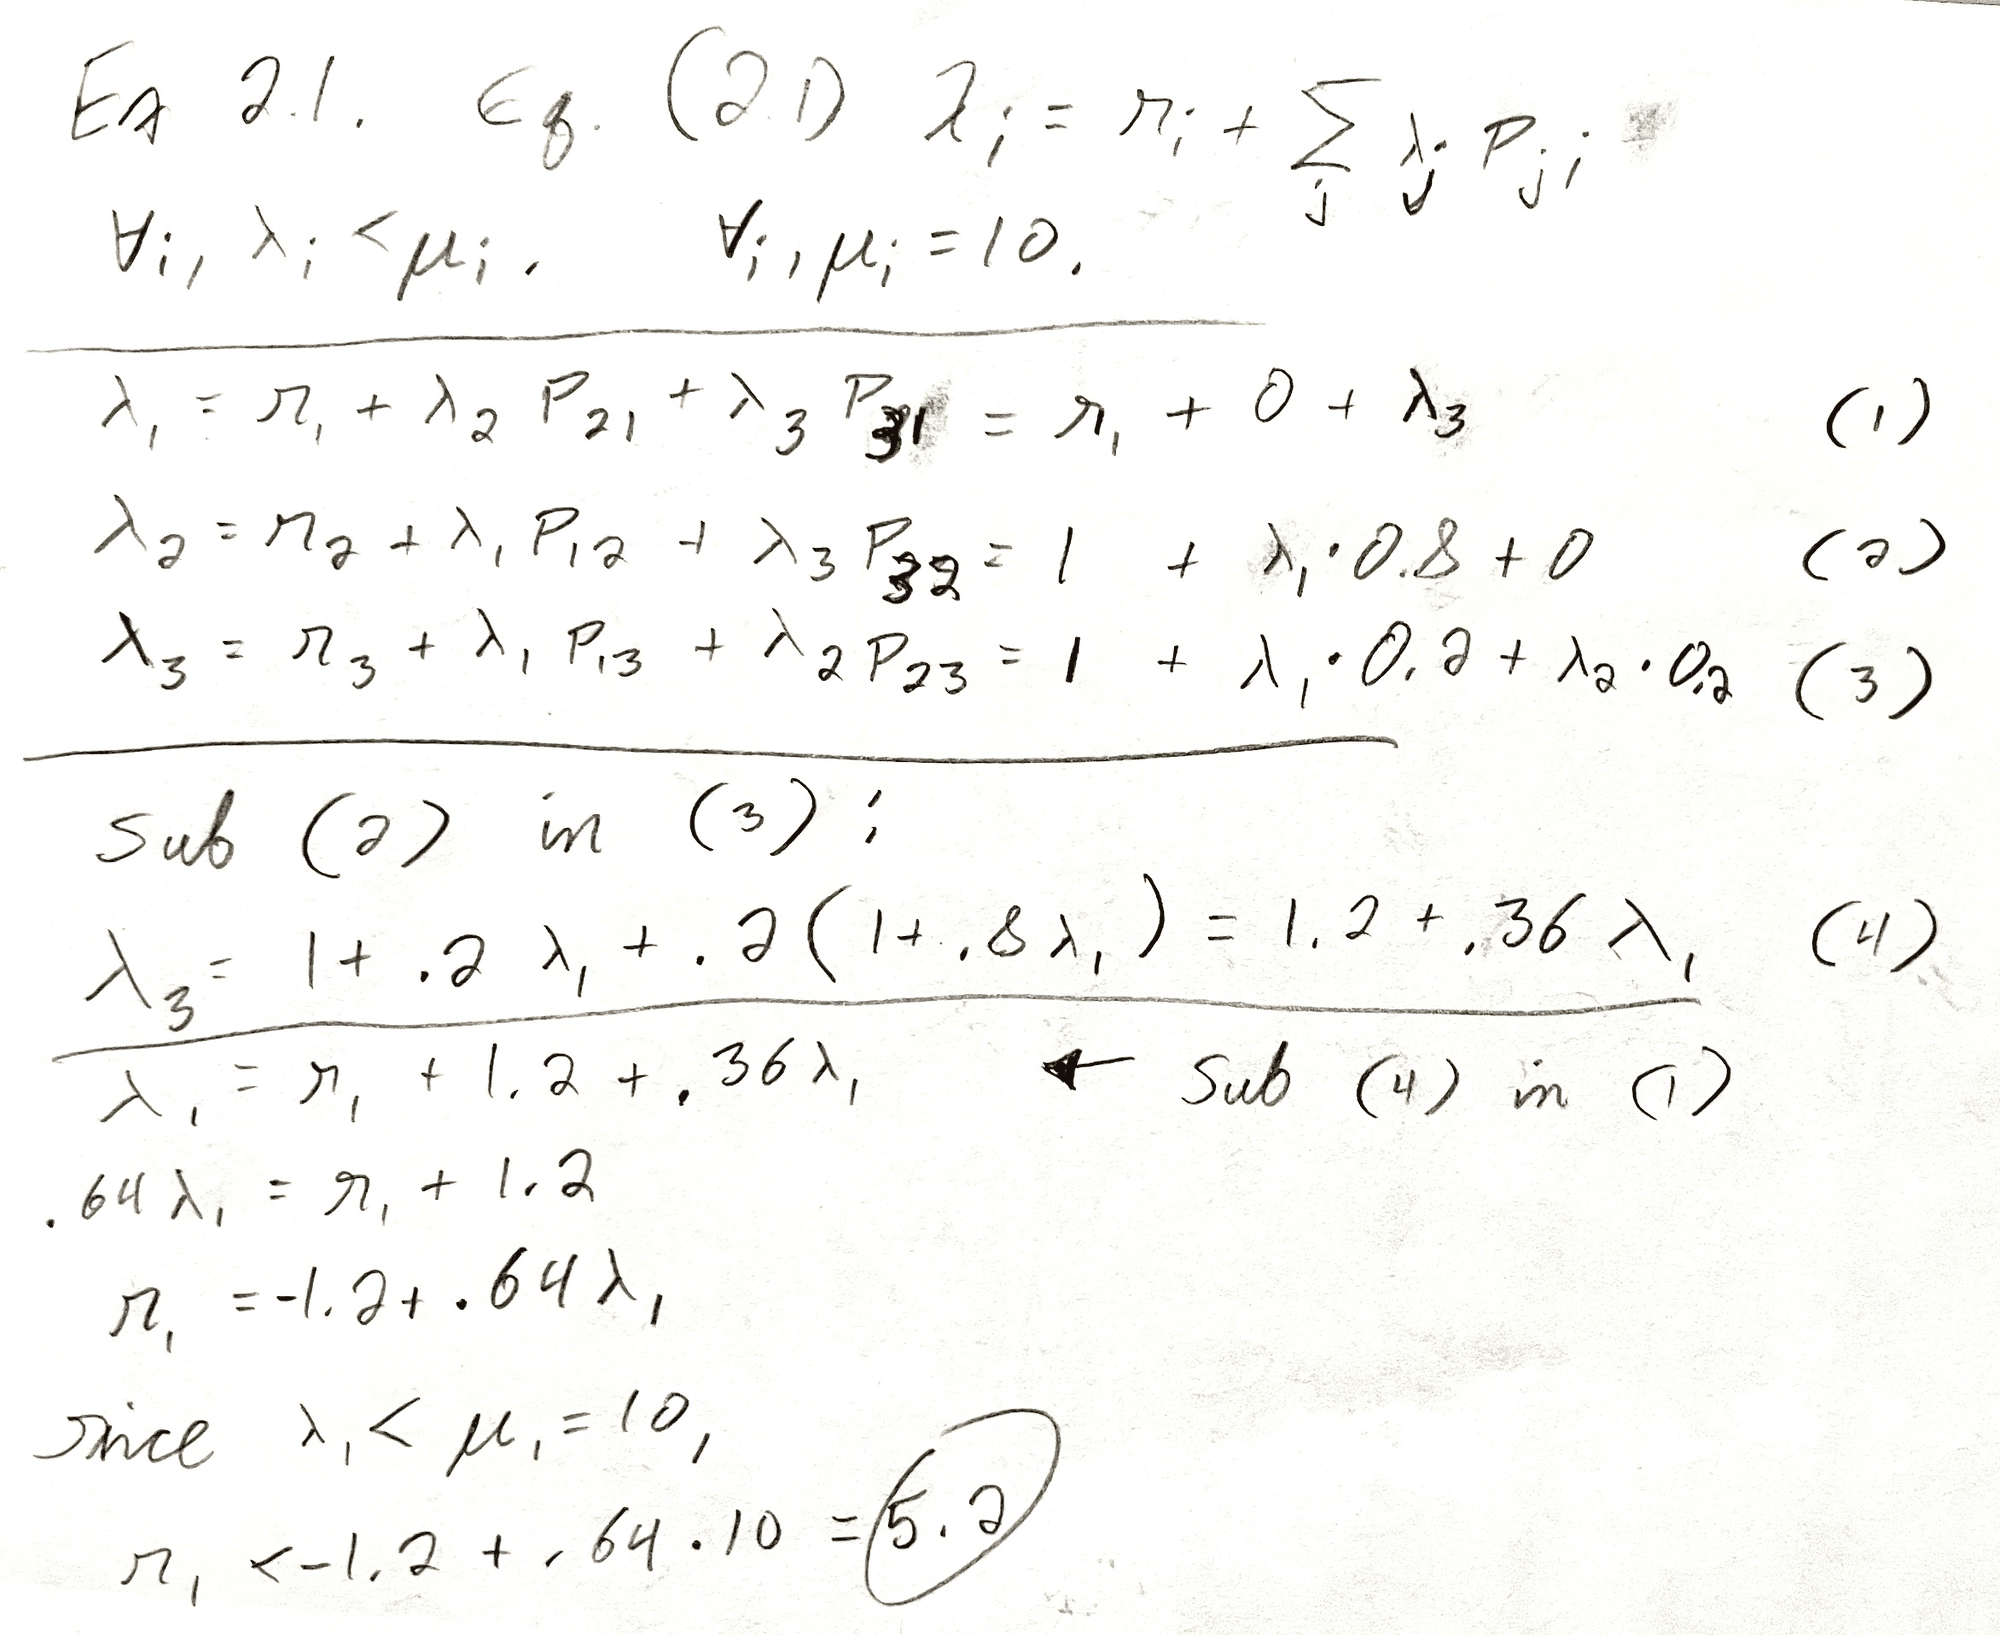 Ex 2.1. Eq. (2.1) λᵢ = rᵢ + ∑ⱼ λⱼ Pⱼᵢ
∀i, λᵢ < μᵢ. ∀i, μᵢ = 10.
λ₁ = r₁ + λ₂ P₂₁ + λ₃ P₃₁ = r₁ + 0 + λ₃ (1)
λ₂ = r₂ + λ₁ P₁₂ + λ₃ P₃₂ = 1 + λ₁·0.8 + 0 (2)
λ₃ = r₃ + λ₁ P₁₃ + λ₂ P₂₃ = 1 + λ₁·0.2 + λ₂·0.2 (3)
Sub (2) in (3):
λ₃ = 1 + .2 λ₁ + .2(1 + .8λ₁) = 1.2 + .36 λ₁ (4)
λ₁ = r₁ + 1.2 + .36λ₁ ← Sub (4) in (1)
.64λ₁ = r₁ + 1.2
r₁ = -1.2 + .64λ₁
Since λ₁ < μ₁ = 10,
r₁ < -1.2 + .64·10 = 5.2